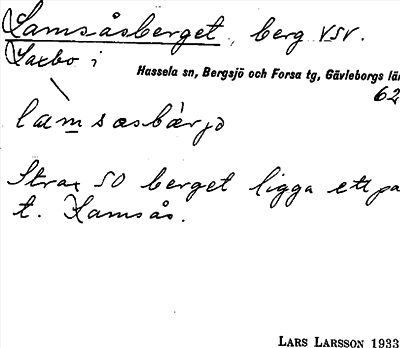 Lamsåsberget, berg VSV.
Laxbo i
Hassela sn, Bergsjö och Forsa tg, Gävleborgs lä
62
Strax SO berget ligga ett pa
t. Lamsås.
LARS LARSSON 1933